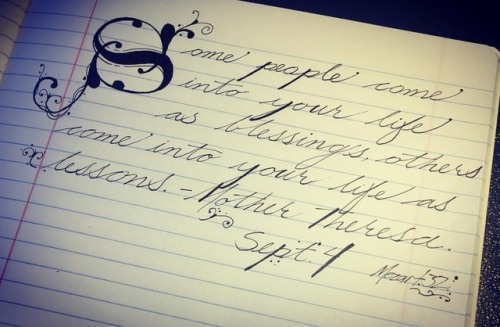 Some people come
into your life
as blessings, others
come into your life as
lessons. - Mother Theresa.
Sept. 4